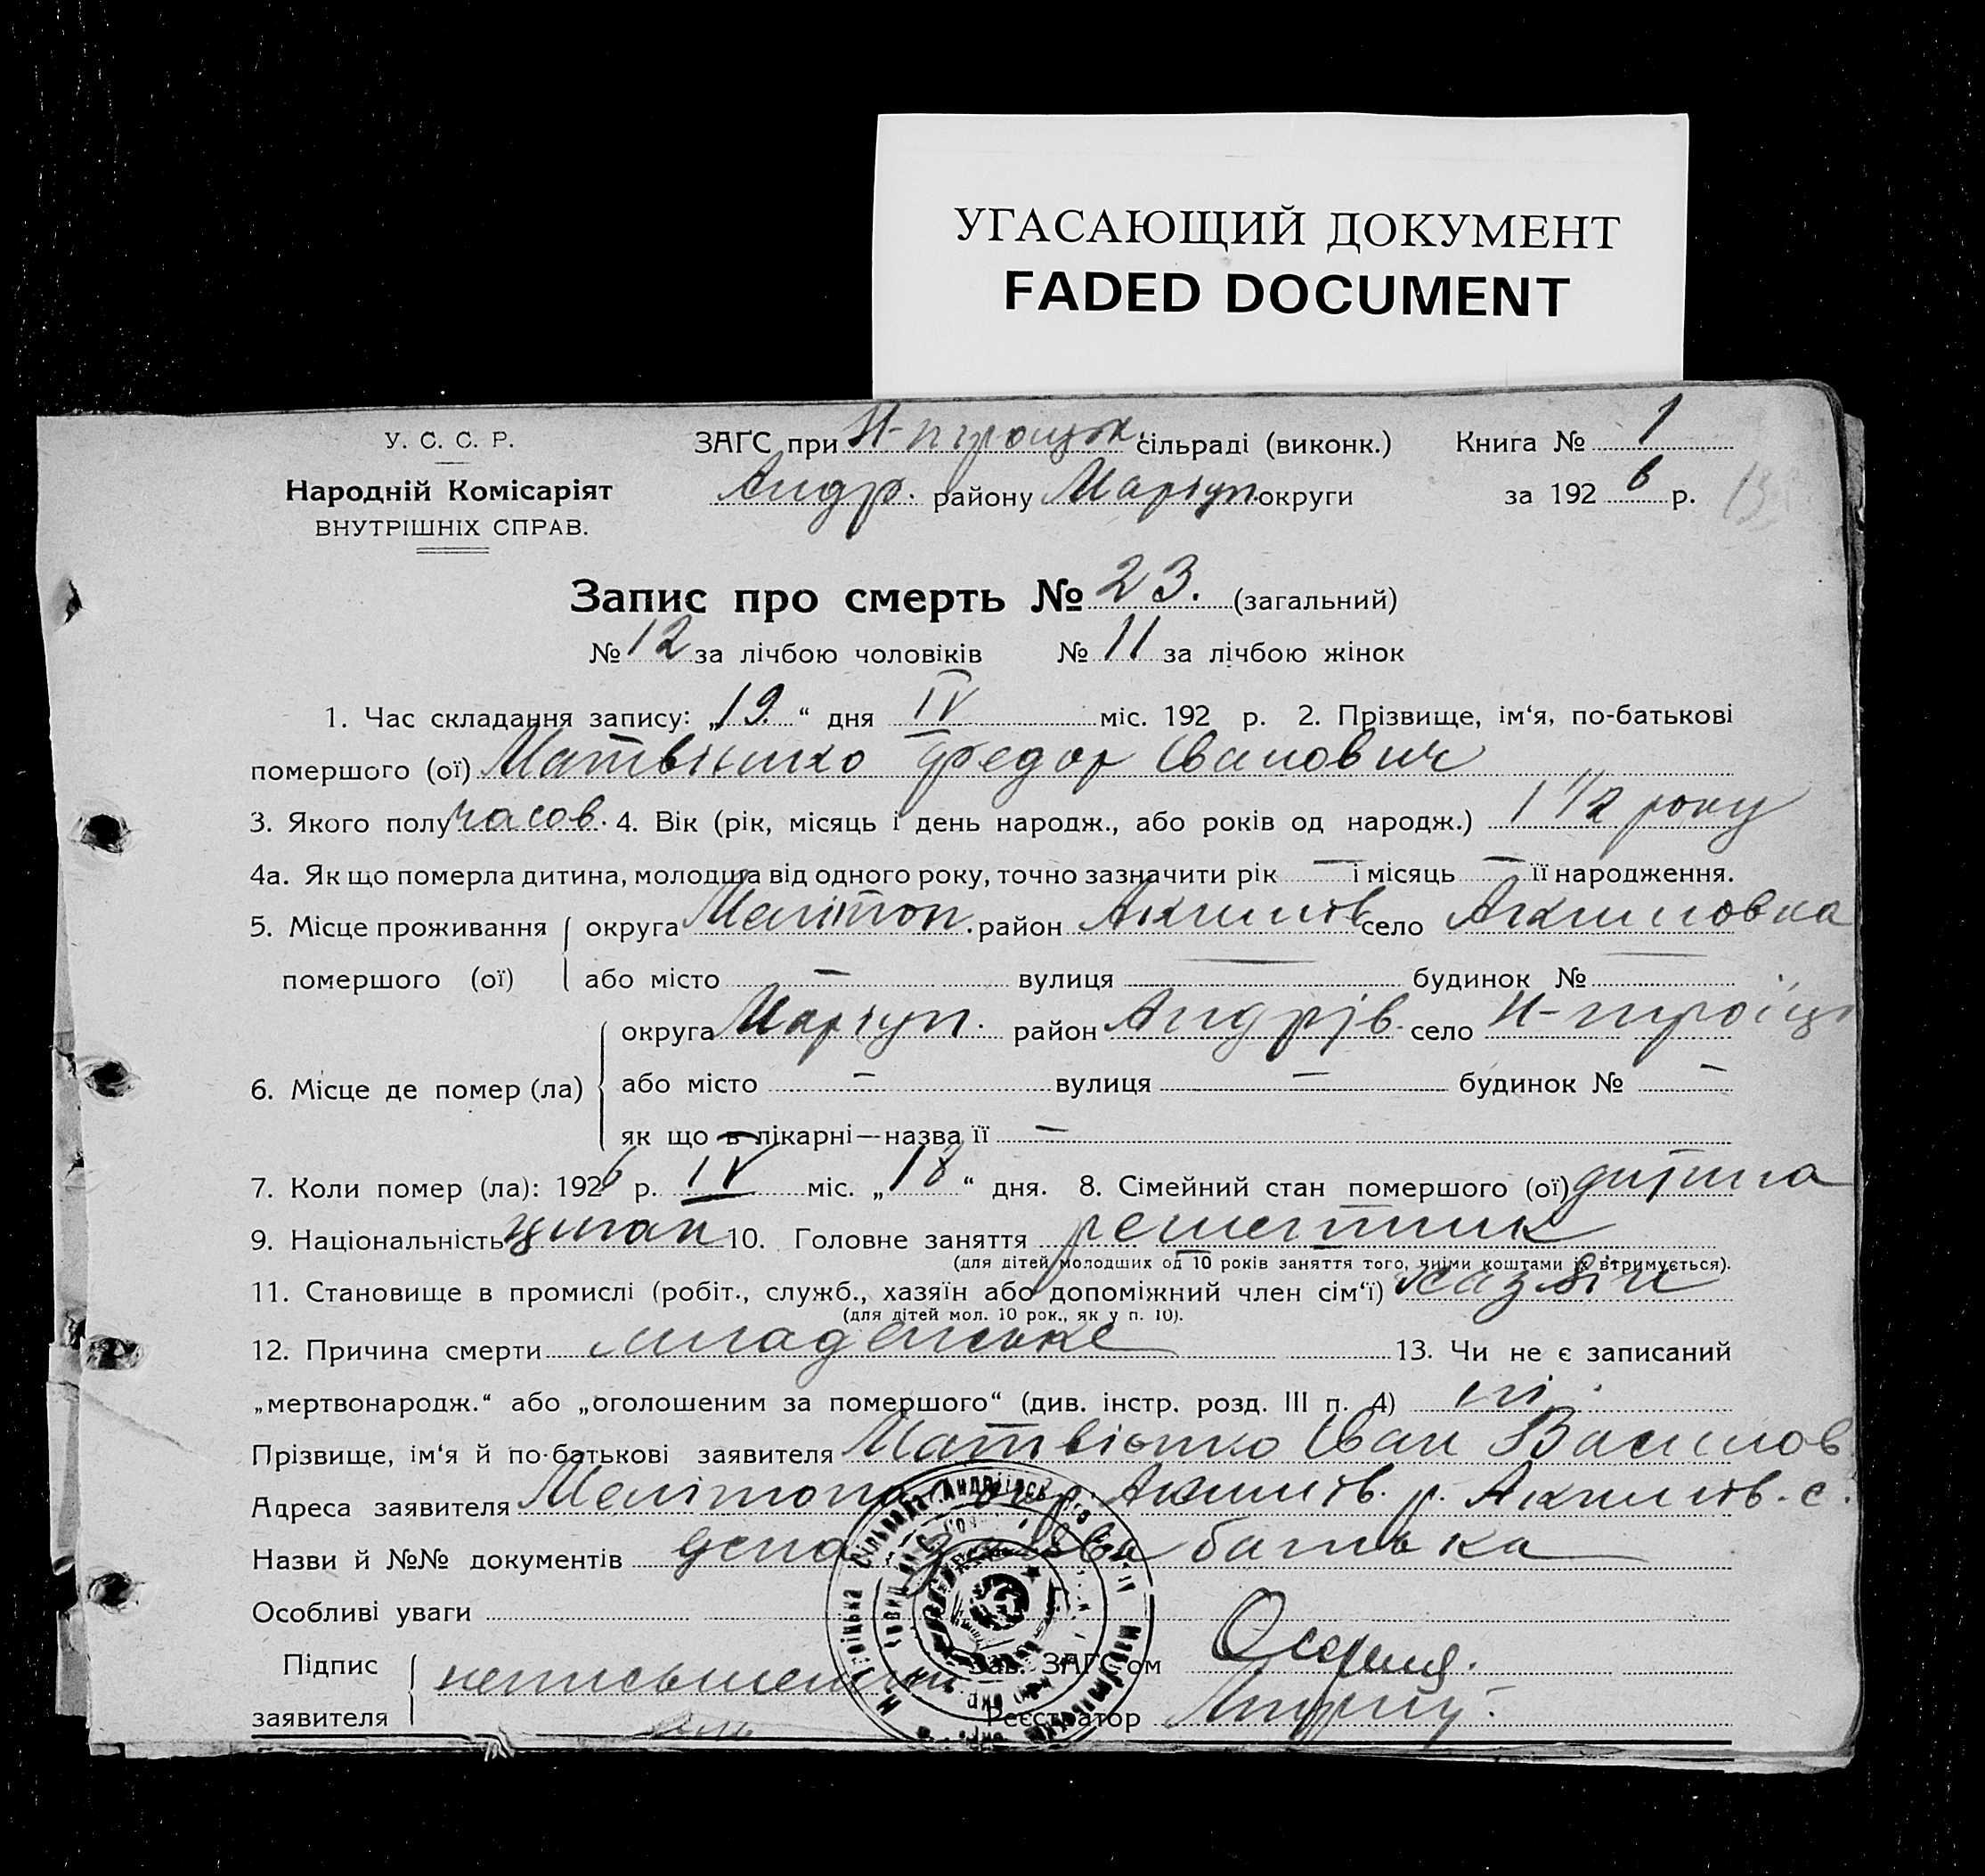 УГАСАЮЩИЙ ДОКУМЕНТ
FADED DOCUMENT
У. С. С. Р.
Народній Комісаріят
ВНУТРІШНІХ СПРАВ.
ЗАГС при Н-троицьк. сільраді (виконк.) Книга № 1
Андр. району Маріуп. округи за 192 6 р.
Запис про смерть № 23. (загальний)
№ 12 за лічбою чоловіків № 11 за лічбою жінок
1. Час складання запису: „19.“ дня IV міс. 192 р. 2. Прізвище, ім‘я, по-батькові
помершого (ої) Матвієнко Федор Іванович
3. Якого полу часов. 4. Вік (рік, місяць і день народж., або років од народж.) 1 1/2 року
4а. Як що померла дитина, молодша від одного року, точно зазначити рік — і місяць — її народження.
5. Місце проживання округа Мелітоп. район Акимів село Акимовка
помершого (ої) або місто — вулиця — будинок №
округа Маріуп. район Андрів. село Н-троїц
6. Місце де помер (ла) або місто — вулиця — будинок № —
як що в лікарні—назва її —
7. Коли помер (ла): 1926 р. IV міс. „18“ дня. 8. Сімейний стан помершого (ої) дитина
9. Національність циган 10. Головне заняття решетник
(для дітей молодших од 10 років заняття того, чиїми коштами їх втримується).
11. Становище в промислі (робіт., служб., хазяїн або допоміжний член сім‘ї) хазяїн
(для дітей мол. 10 рок., як у п. 10).
12. Причина смерти младенське 13. Чи не є записаний
„мертвонародж.“ або „оголошеним за помершого“ (див. інстр. розд. III п. 4) ні
Прізвище, ім‘я й по-батькові заявителя Матвієнко Іван Васильов
Адреса заявителя Мелітоп. окр. Акимів. р. Акимів. с.
Назви й №№ документів батька
Особливі уваги
Підпис неписьменний Зав. ЗАГС‘ом
заявителя Реєстратор